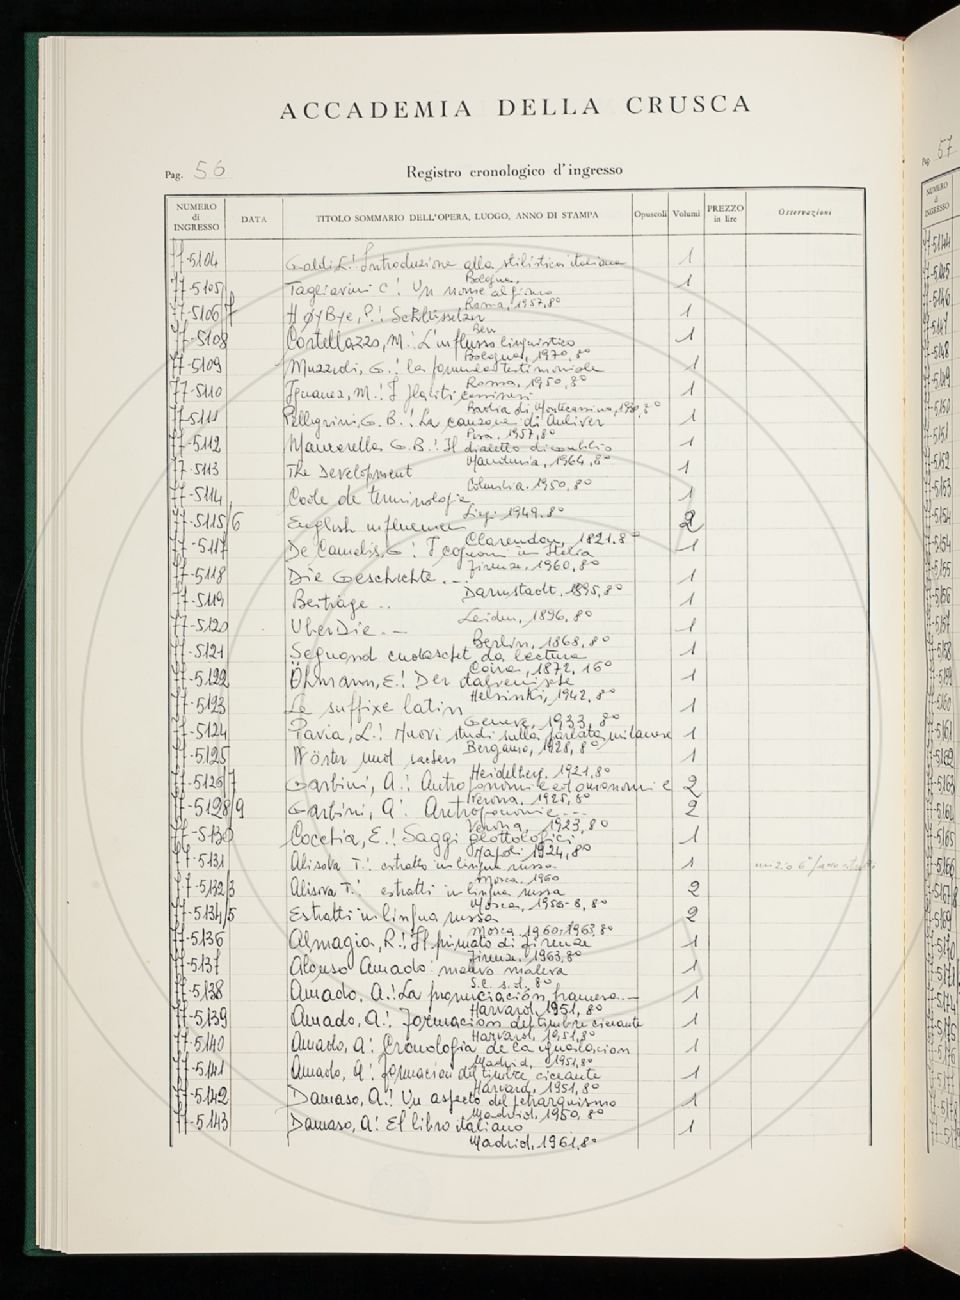 ACCADEMIA DELLA CRUSCA
Pag. 56
Registro cronologico d'ingresso
NUMERO di INGRESSO DATA TITOLO SOMMARIO DELL'OPERA, LUOGO, ANNO DI STAMPA Opuscoli Volumi PREZZO in lire Osservazioni
77-5104 Galdi L.: Introduzione alla stilistica italiana 1
Bologna,
77-5105 Tagliavini C.: Un nome al giorno 1
Roma, 1957, 8°
77-5106/7 Høybye, P.: Schlüssel zu 1
77-5108 Cortellazzo, M.: L'influsso linguistico 1
Bologna, 1970, 8°
77-5109 Muzzioli, G.: la formula testimoniale 1
Roma, 1950, 8°
77-5110 Inguanez, M.: I Placiti cassinesi 1
Badia di Montecassino, 8°
77-5111 Pellegrini, G. B.: La canzone di Auliver 1
Pisa, 1957, 8°
77-5112 G. B.: Il dialetto di 1
Manduria, 1964, 8°
77-5113 The Development 1
Columbia. 1950, 8°
77-5114 Code de terminologie 1
1949. 8°
77-5115/6 English influence 2
Clarendon, 1821. 8°
77-5117 De Camelis, G.: I cognomi in Italia 1
Firenze, 1960, 8°
77-5118 Die Geschichte... 1
Darmstadt, 1895, 8°
77-5119 Beiträge .. 1
Leiden, 1896, 8°
77-5120 Uber Die... 1
Berlin, 1868, 8°
77-5121 Segnond da lectura 1
Coira, 1872, 16°
77-5122 Öhmann, E.: Der 1
Helsinki, 1942, 8°
77-5123 Le suffixe latin 1
Geneve, 1933, 8°
77-5124 Pavia, L.: Nuovi studi sulla parlata milanese 1
Bergamo, 1928, 8°
77-5125 Wörter und sachen 1
Heidelberg, 1921, 8°
77-5126/7 Garbini, A.: Antroponimie ed omonimie 2
Verona, 1925, 8°
77-5128/9 Garbini, A.: Antroponimie... 2
Verona, 1923, 8°
77-5130 Cocchia, E.: Saggi glottologici 1
Napoli 1924, 8°
77-5131 Alisova T.: estratto in lingua russa 1
Mosca, 1960
77-5132/3 Alisova T.: estratti in lingua russa 2
Mosca, 8°
77-5134/5 Estratti in lingua russa 2
Mosca 1960-1963, 8°
77-5136 Almagia, R.: Il primato di firenze 1
Firenze, 1963, 8°
77-5137 Alonso Amado: malva 1
S.l. s.d., 8°
77-5138 Amado, A.: La pronunciación francesa... 1
Harvard, 1951, 8°
77-5139 Amado, A.: Formacion del timbre ciceante 1
Harvard, 1951, 8°
77-5140 Amado, A.: Cronologia de la igualacion 1
Madrid, 1951, 8°
77-5141 Amado, A.: formacion del timbre ciceante 1
Harvard, 1951, 8°
77-5142 Damaso, A.: Un aspecto del petrarquismo 1
Madrid, 1950, 8°
77-5143 Damaso, A.: El libro italiano 1
Madrid, 1961, 8°
Pag. 57
NUMERO di INGRESSO